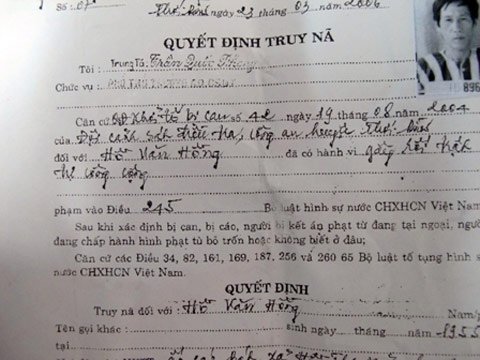 Số: 07 Thới Bình ngày 23 tháng 03 năm 2006
QUYẾT ĐỊNH TRUY NÃ
Tôi : Trung Tá. Trần Quốc
Chức vụ :
Căn cứ khởi tố bị can số 42 ngày 19 tháng 08 năm 2004
của Đội cảnh sát điều tra công an huyện Thới Bình
đối với Hồ Văn Hồng đã có hành vi gây rối trật
tự công cộng
phạm vào Điều 245 Bộ luật hình sự nước CHXHCN Việt Nam
Sau khi xác định bị can, bị cáo, người bị kết án phạt tù đang tại ngoại, người
đang chấp hành hình phạt tù bỏ trốn hoặc không biết ở đâu;
Căn cứ các Điều 34, 82, 161, 169, 187, 256 và 260 65 Bộ luật tố tụng hình s
nước CHXHCN Việt Nam.
QUYẾT ĐỊNH
Truy nã đối với : Hồ Văn Hồng Nam/
Tên gọi khác : sinh ngày tháng năm 1955
tại